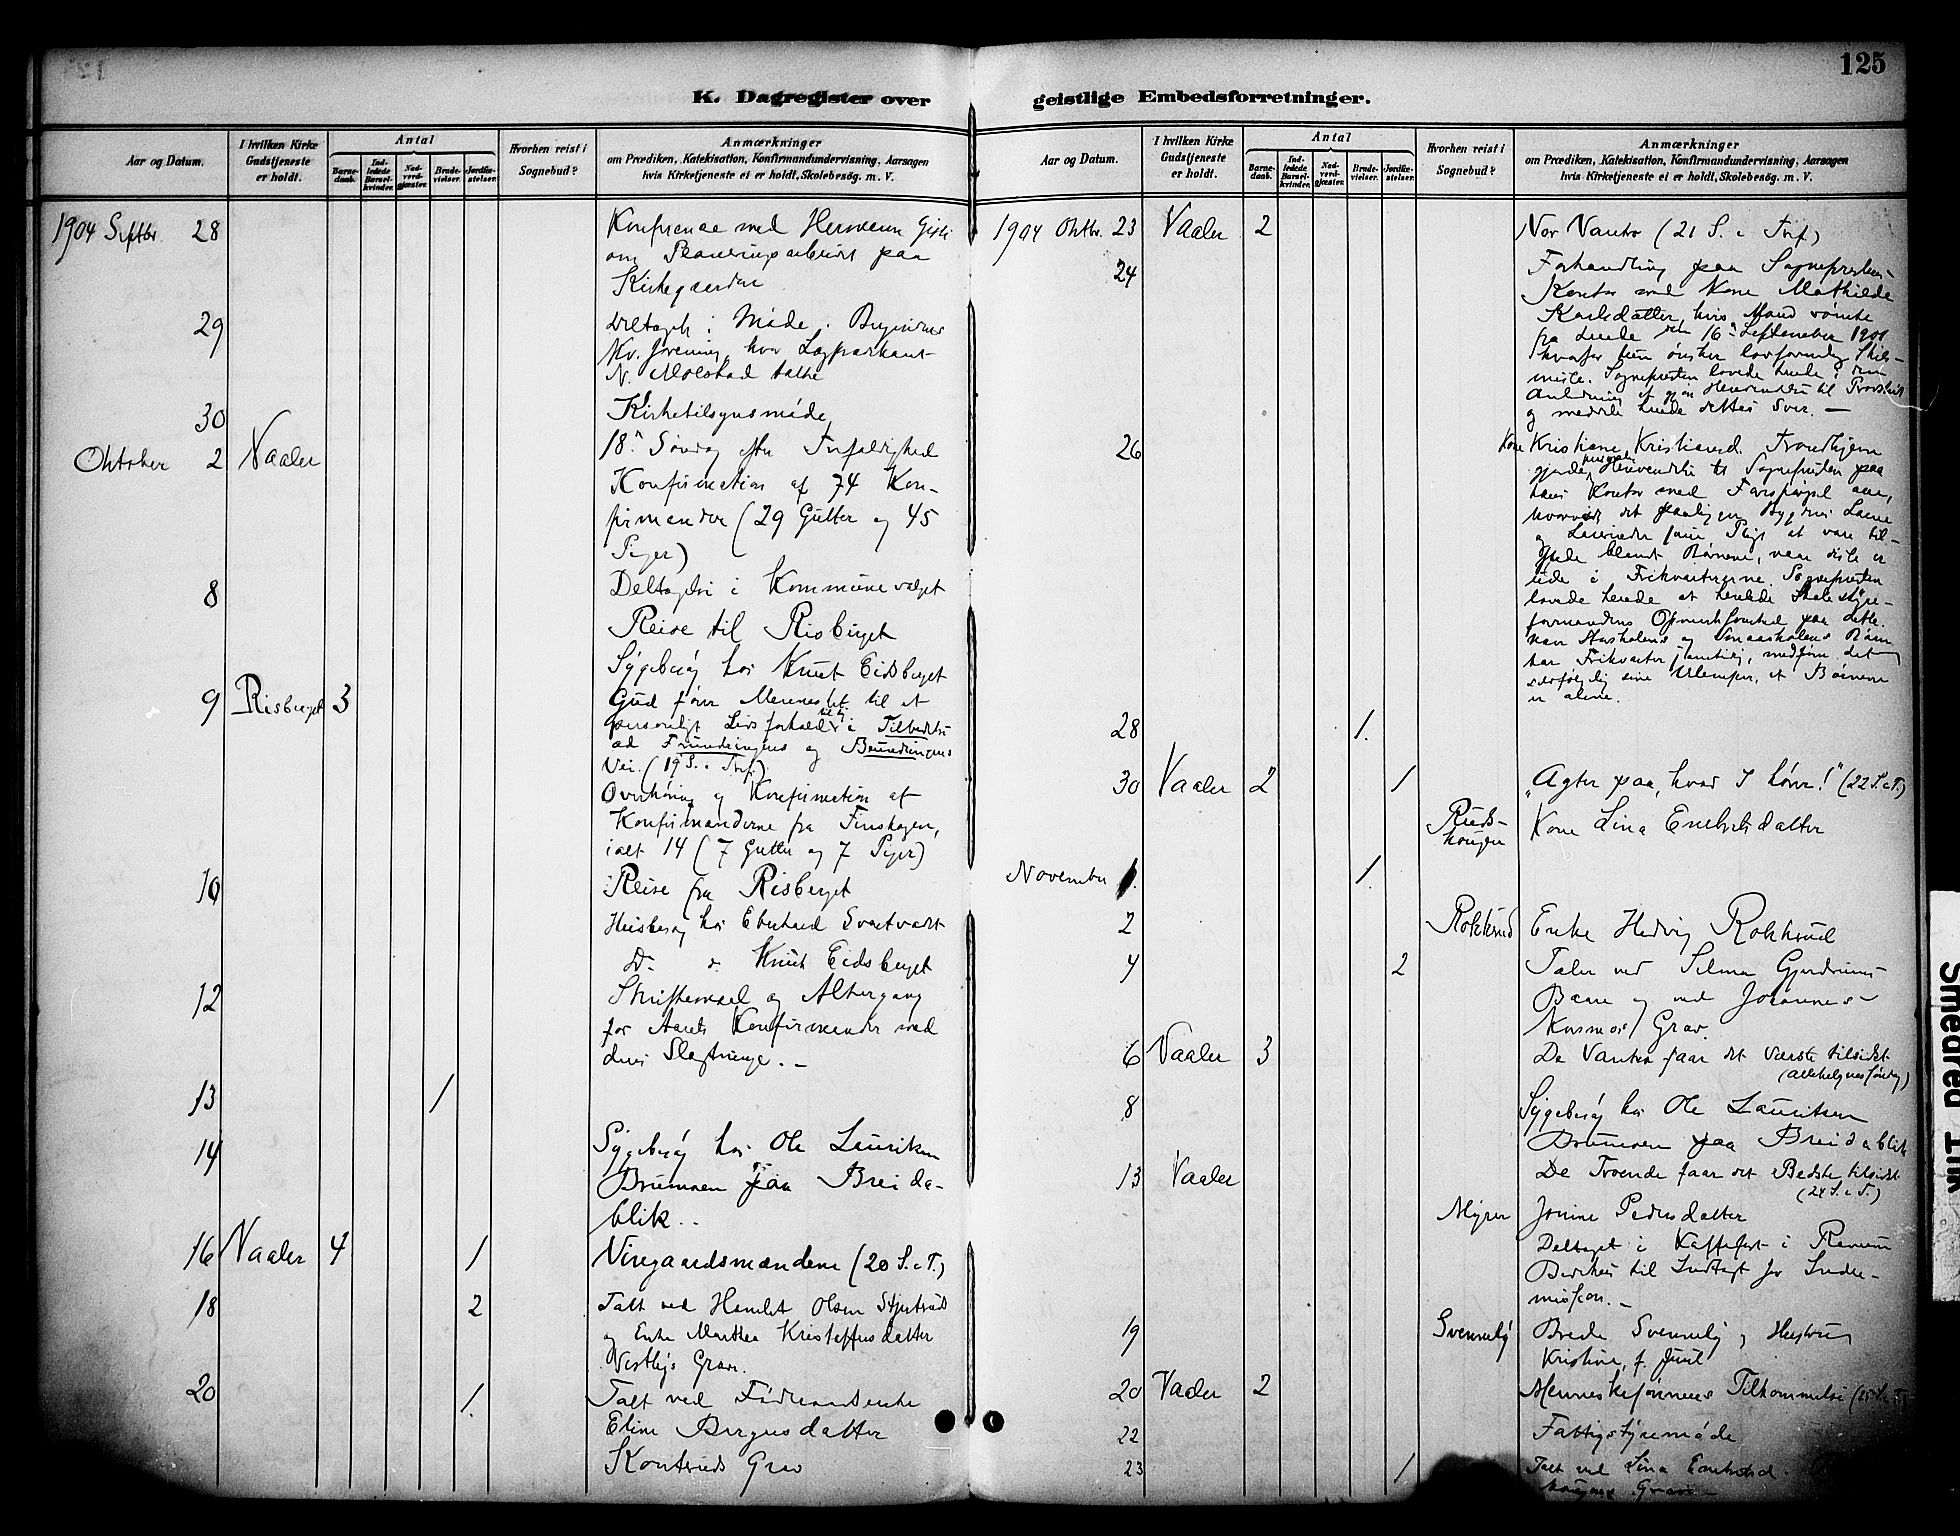 125
K. Dagregister over geistlige Embedsforretninger.
Aar og Datum.
I hvilken Kirke Gudstjeneste er holdt.
Antal
Barnedaab.
Indledede Barselkvinder.
Nadverdgjæster.
Brudevielser.
Jordfæstelser.
Hvorhen reist i Sognebud?
Anmærkninger
om Prædiken, Katekisation, Konfirmandundervisning, Aarsagen
hvis Kirketjeneste ei er holdt, Skolebesøg. m. V.
1904 Septbr. 28 Konferense med Hermann
om Planeringsarbeidet paa
Kirkegaarden
29 Deltaget i Møde i
Kv. forening, hvor
N. Molstad talte
30 Kirketilsynsmøde
Oktober 2 Vaaler 18n Søndag efter Trefoldighed
Konfirmation af 74 Kon-
firmander (29 Gutter og 45
Piger)
8 Deltaget i Kommunevalget
Reise til Risberget
Sygebesøg hos Knut Eidsberget
9 Risberget 3 Gud fører Mennesket til et
personligt Livsforhold til sig i Tilbedelse
ad Forundringens og Beundringens
Vei. (19 S. e. Tref.)
Overhøring og Konfirmation af
Konfirmanderne fra Finskogen,
ialt 14 (7 Gutter og 7 Piger)
10 Reise fra Risberget
Husbesøg hos Eberhard Svartvadt
Do. o. Knut Eidsberget
12 Skriftemaal og Altergang
for Aarets Konfirmander med
deres Slægtninge. –
13 1
14 Sygebesøg hos Ole Lauritsen
Brumoen paa Breida-
blik.
16 Vaaler 4 1 Vingaardsmændene (20 S. e. T.)
18 2 Talt ved Hamlet Olsen
og Enke Marthea Kristoffersdatter
Vestbys Grave.
20 1. Talt ved Føderaadsenke
Eline Børgersdatter
Konterud Grav
K. Dagregister over geistlige Embedsforretninger.
Aar og Datum.
I hvilken Kirke Gudstjeneste er holdt.
Antal
Barnedaab.
Indledede Barselkvinder.
Nadverdgjæster.
Brudevielser.
Jordfæstelser.
Hvorhen reist i Sognebud?
Anmærkninger
om Prædiken, Katekisation, Konfirmandundervisning, Aarsagen
hvis Kirketjeneste ei er holdt, Skolebesøg. m. V.
1904 Oktbr. 23 Vaaler 2 Vor Vantro (21 S. e. Tref.)
24 Forhandling paa Sogneprestens
Kontor med Kone Mathilde
Karlsdatter, hvis Mand rømte
fra hende den 16n September 1901
hvorfor hun ønsker lovformelig Skils-
misse. Sognepresten lovede hende i den
Anledning at gjøre Henvendelse til Provsten
og meddele hende dettes Svar. –
26 Kone Kristiane Kristiansd. Trondhjem
gjorde personlig Henvendelse til Sognepresten paa
hans Kontor med Forespørgsel om,
hvorvidt det paaligger Bygdens Lærere
og Lærerinder som Pligt at være til-
stede blandt Børnene, naar disse er
ude i Frikvartererne. Sognepresten
lovede hende at henlede Skolestyre-
formandens Opmerksomhed paa dette.
naar Storskolens og Smaaskolens Børn
har Frikvarter samtidig, medfører det
selvfølgelig sine Ulemper, at Børnene
er alene.
28 1.
30 Vaaler 2 1 „Agter paa, hvad I hører!" (22 S. e. T.)
Ruds-
haugen Kone Lina Enebretsdatter
November 1. 1.
2 Rokkerud Enke Hedvig Rokkerud
4 2 Taler ved Selma Gjerdrums
Baare og ved Johannes
Grav.
6 Vaaler 3 De Vantro faar det Værste tilsidst
(Allehelgenssøndag)
8 Sygebesøg hos Ole Lauritsen
Brumoen paa Breidablik
13 Vaaler De Troende faar det Bedste tilsidst
(24 S. e. T.)
Myrer Jonine Pedersdatter
Deltaget i Kaffefest i
til Indtægt for Indre-
mission. –
19 Svenneby Brede Svenneby og Hustru
Kristine, f. Juul
20 Vaaler 2 Menneskesønnens Tilkommelse (25 S. e. T.)
22 Fattigstyremøde
23 1 Talt ved Lina Enebretsd.
Grav –
Smedred 111k